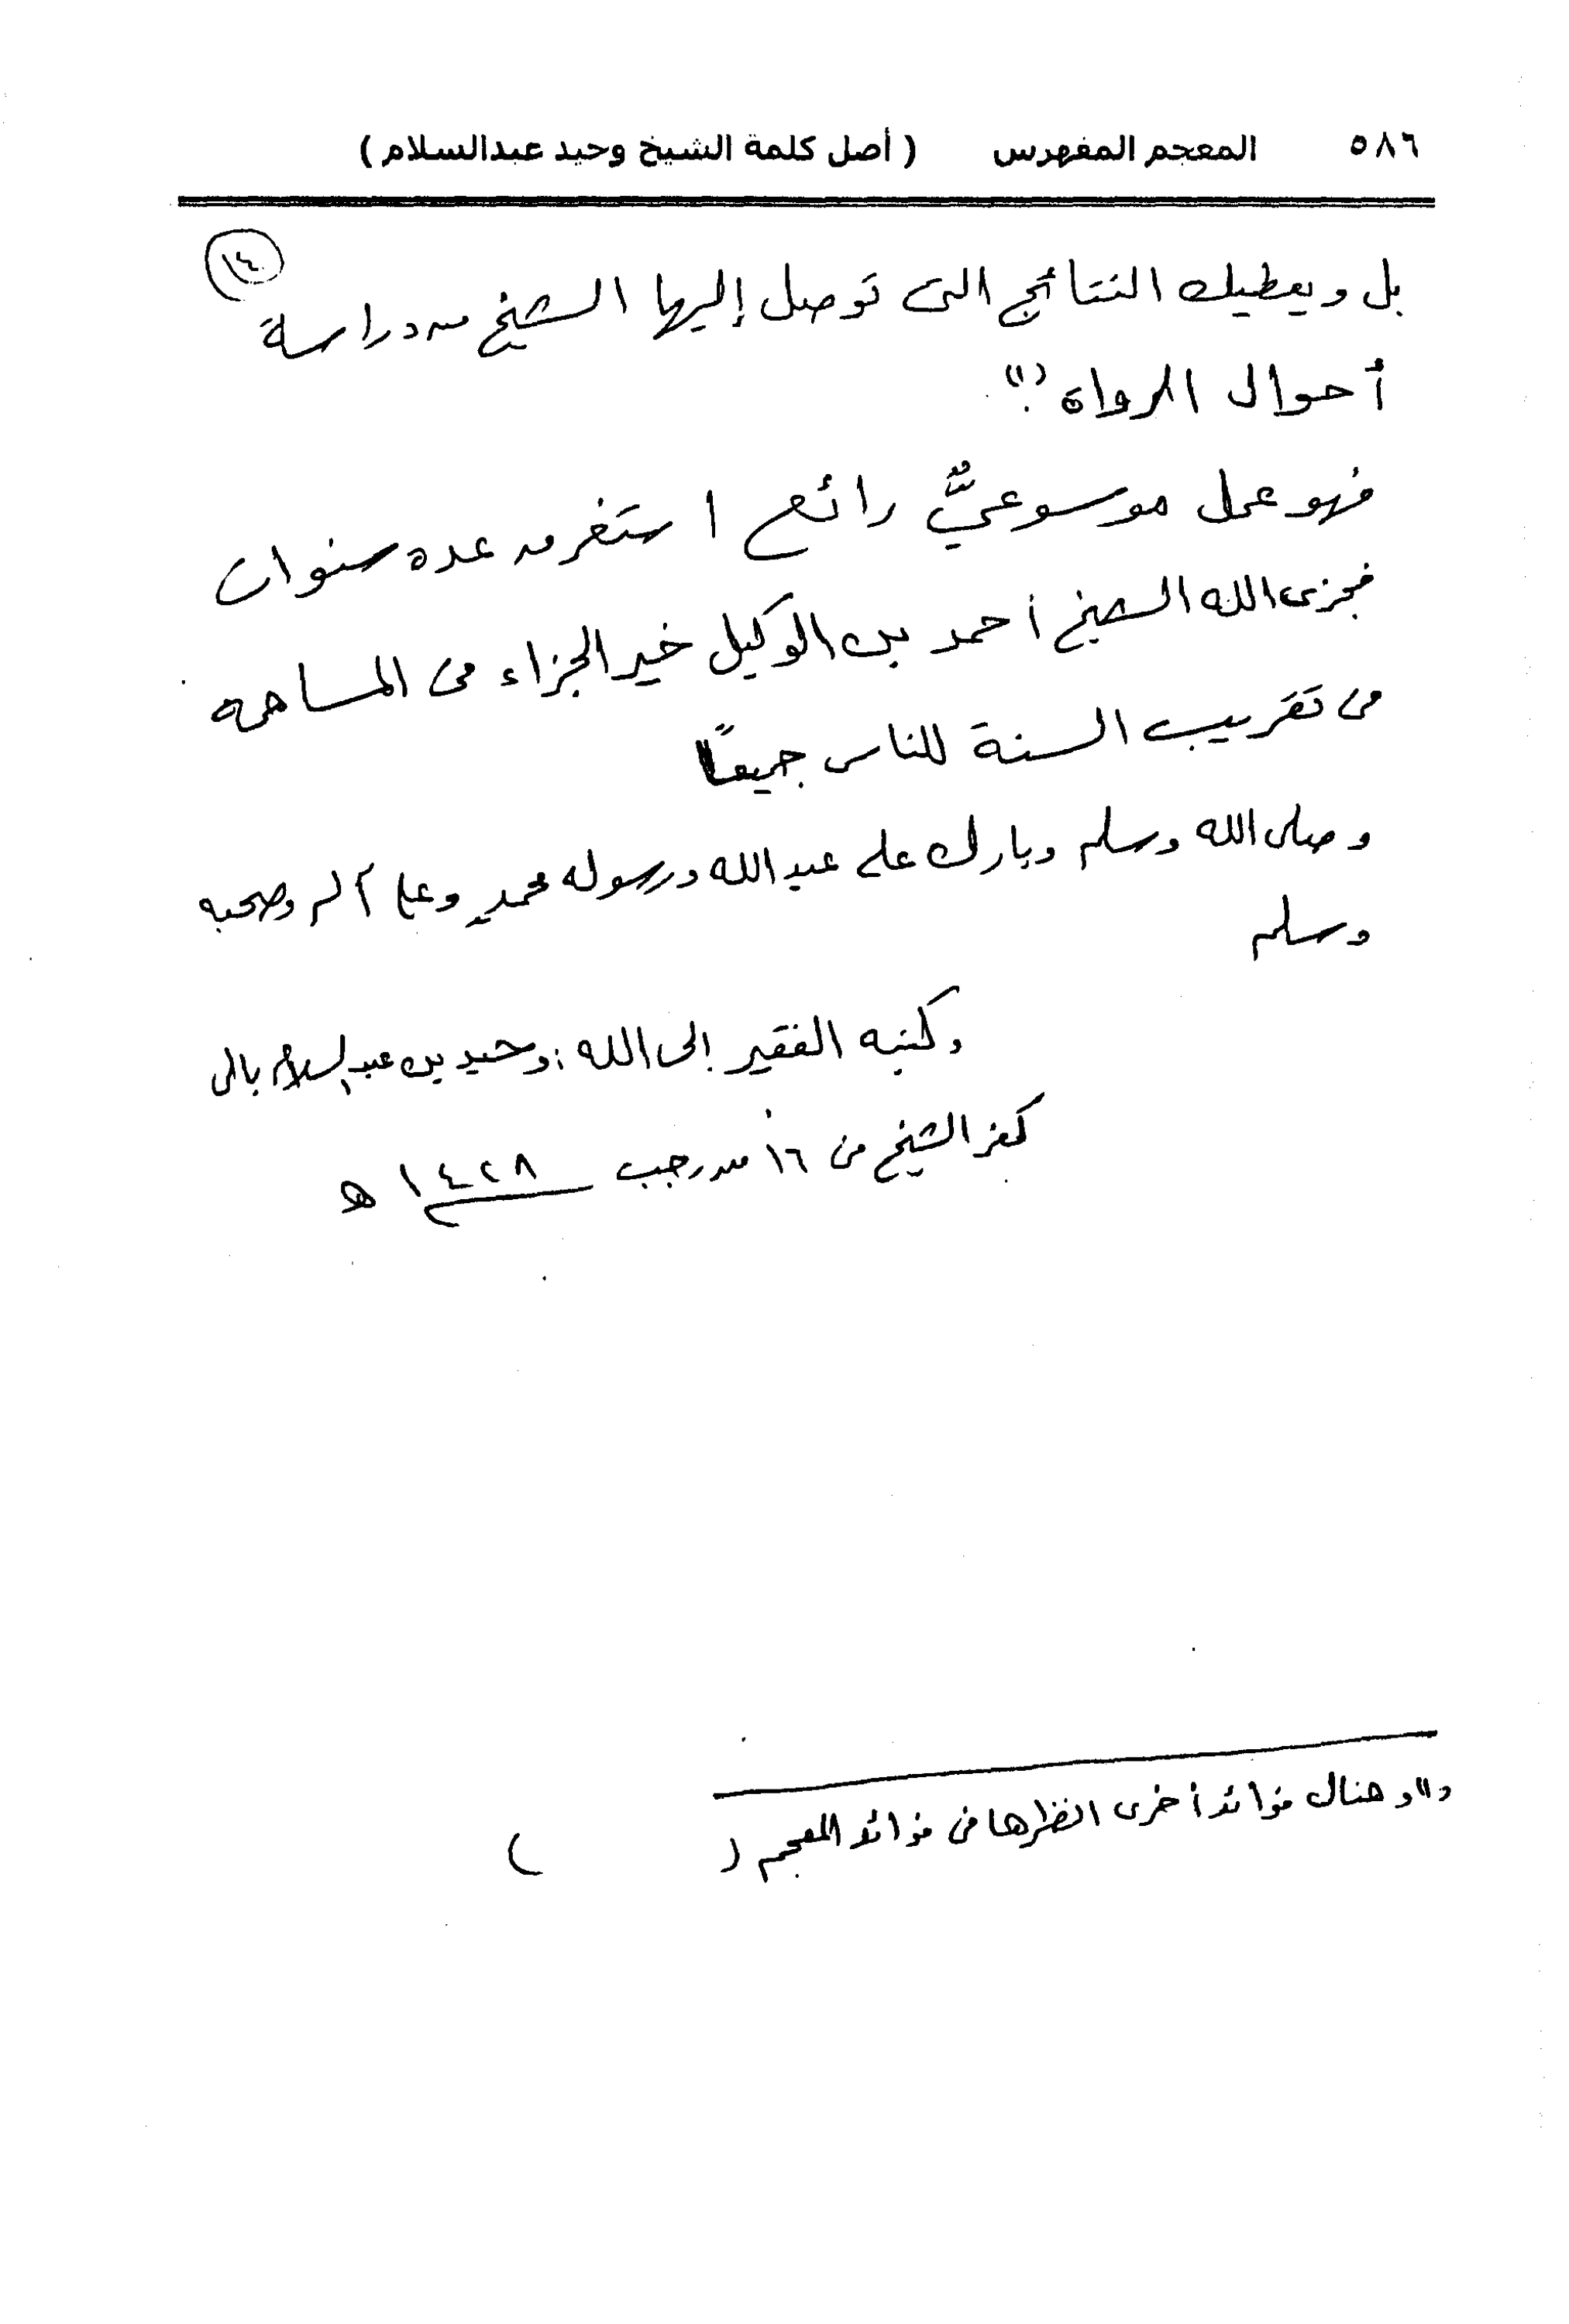 ٥٨٦ المعجم المفهرس ( أصل كلمة الشيخ وحيد عبدالسلام )
١٤
بل ويعطيك النتائج التى توصل إليها الشيخ من دراسة
أحوال الرواة (١)
فهو عمل موسوعيٌّ رائع استغرق منه عدة سنوات
فجزى الله الشيخ أحمد بن الوكيل خير الجزاء فى المساهمة
فى تقريب السنة للناس جميعًا
وصلى الله وسلم وبارك على عبد الله ورسوله محمدٍ وعلى آله وصحبه
وسلم
وكتبه الفقير إلى الله : وحيد بن عبد السلام بالى
كفر الشيخ فى ١٦ من رجب ١٤٢٨ هـ
(١) وهناك فوائد أخرى انظرها فى فوائد المعجم ( )